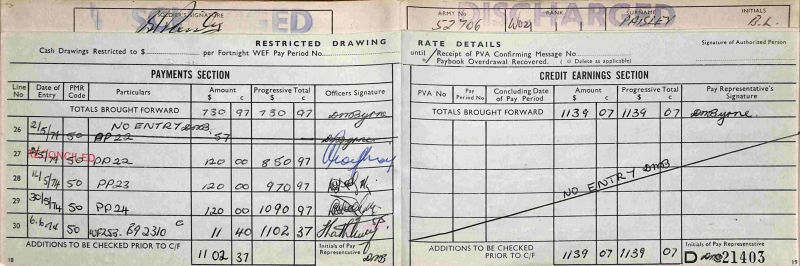 DISCHARGED
SOLDIER'S SIGNATURE
RESTRICTED DRAWING
Cash Drawings Restricted to $ per Fortnight WEF Pay Period No.
PAYMENTS SECTION
Line No Date of Entry PMR Code Particulars Amount $ c Progressive Total $ c Officers Signature
TOTALS BROUGHT FORWARD 730 97 730 97 DMByrne
NO ENTRY DMB
26 2/5/74 50 PP22 57 DMByrne
RECONCILED
27 2/5/74 50 PP22 120 00 850 97
28 14/5/74 50 PP23 120 00 970 97
29 30/5/74 50 PP24 120 00 1090 97
30 6.6.74 50 WF253 B92310 c 11 40 1102 37
ADDITIONS TO BE CHECKED PRIOR TO C/F 1102 37 Initials of Pay Representative DMB
18
DISCHARGED
ARMY No RANK SURNAME INITIALS
52706 WO2 PAISLEY B.L.
RATE DETAILS
Signature of Authorized Person
until Receipt of PVA Confirming Message No
Paybook Overdrawal Recovered. ( Delete as applicable)
CREDIT EARNINGS SECTION
PVA No Pay Period No Concluding Date of Pay Period Amount $ c Progressive Total $ c Pay Representative's Signature
TOTALS BROUGHT FORWARD 1139 07 1139 07 DMByrne
NO ENTRY DMB
ADDITIONS TO BE CHECKED PRIOR TO C/F 1139 07 1139 07 Initials of Pay Representative DMB
D 21403
19